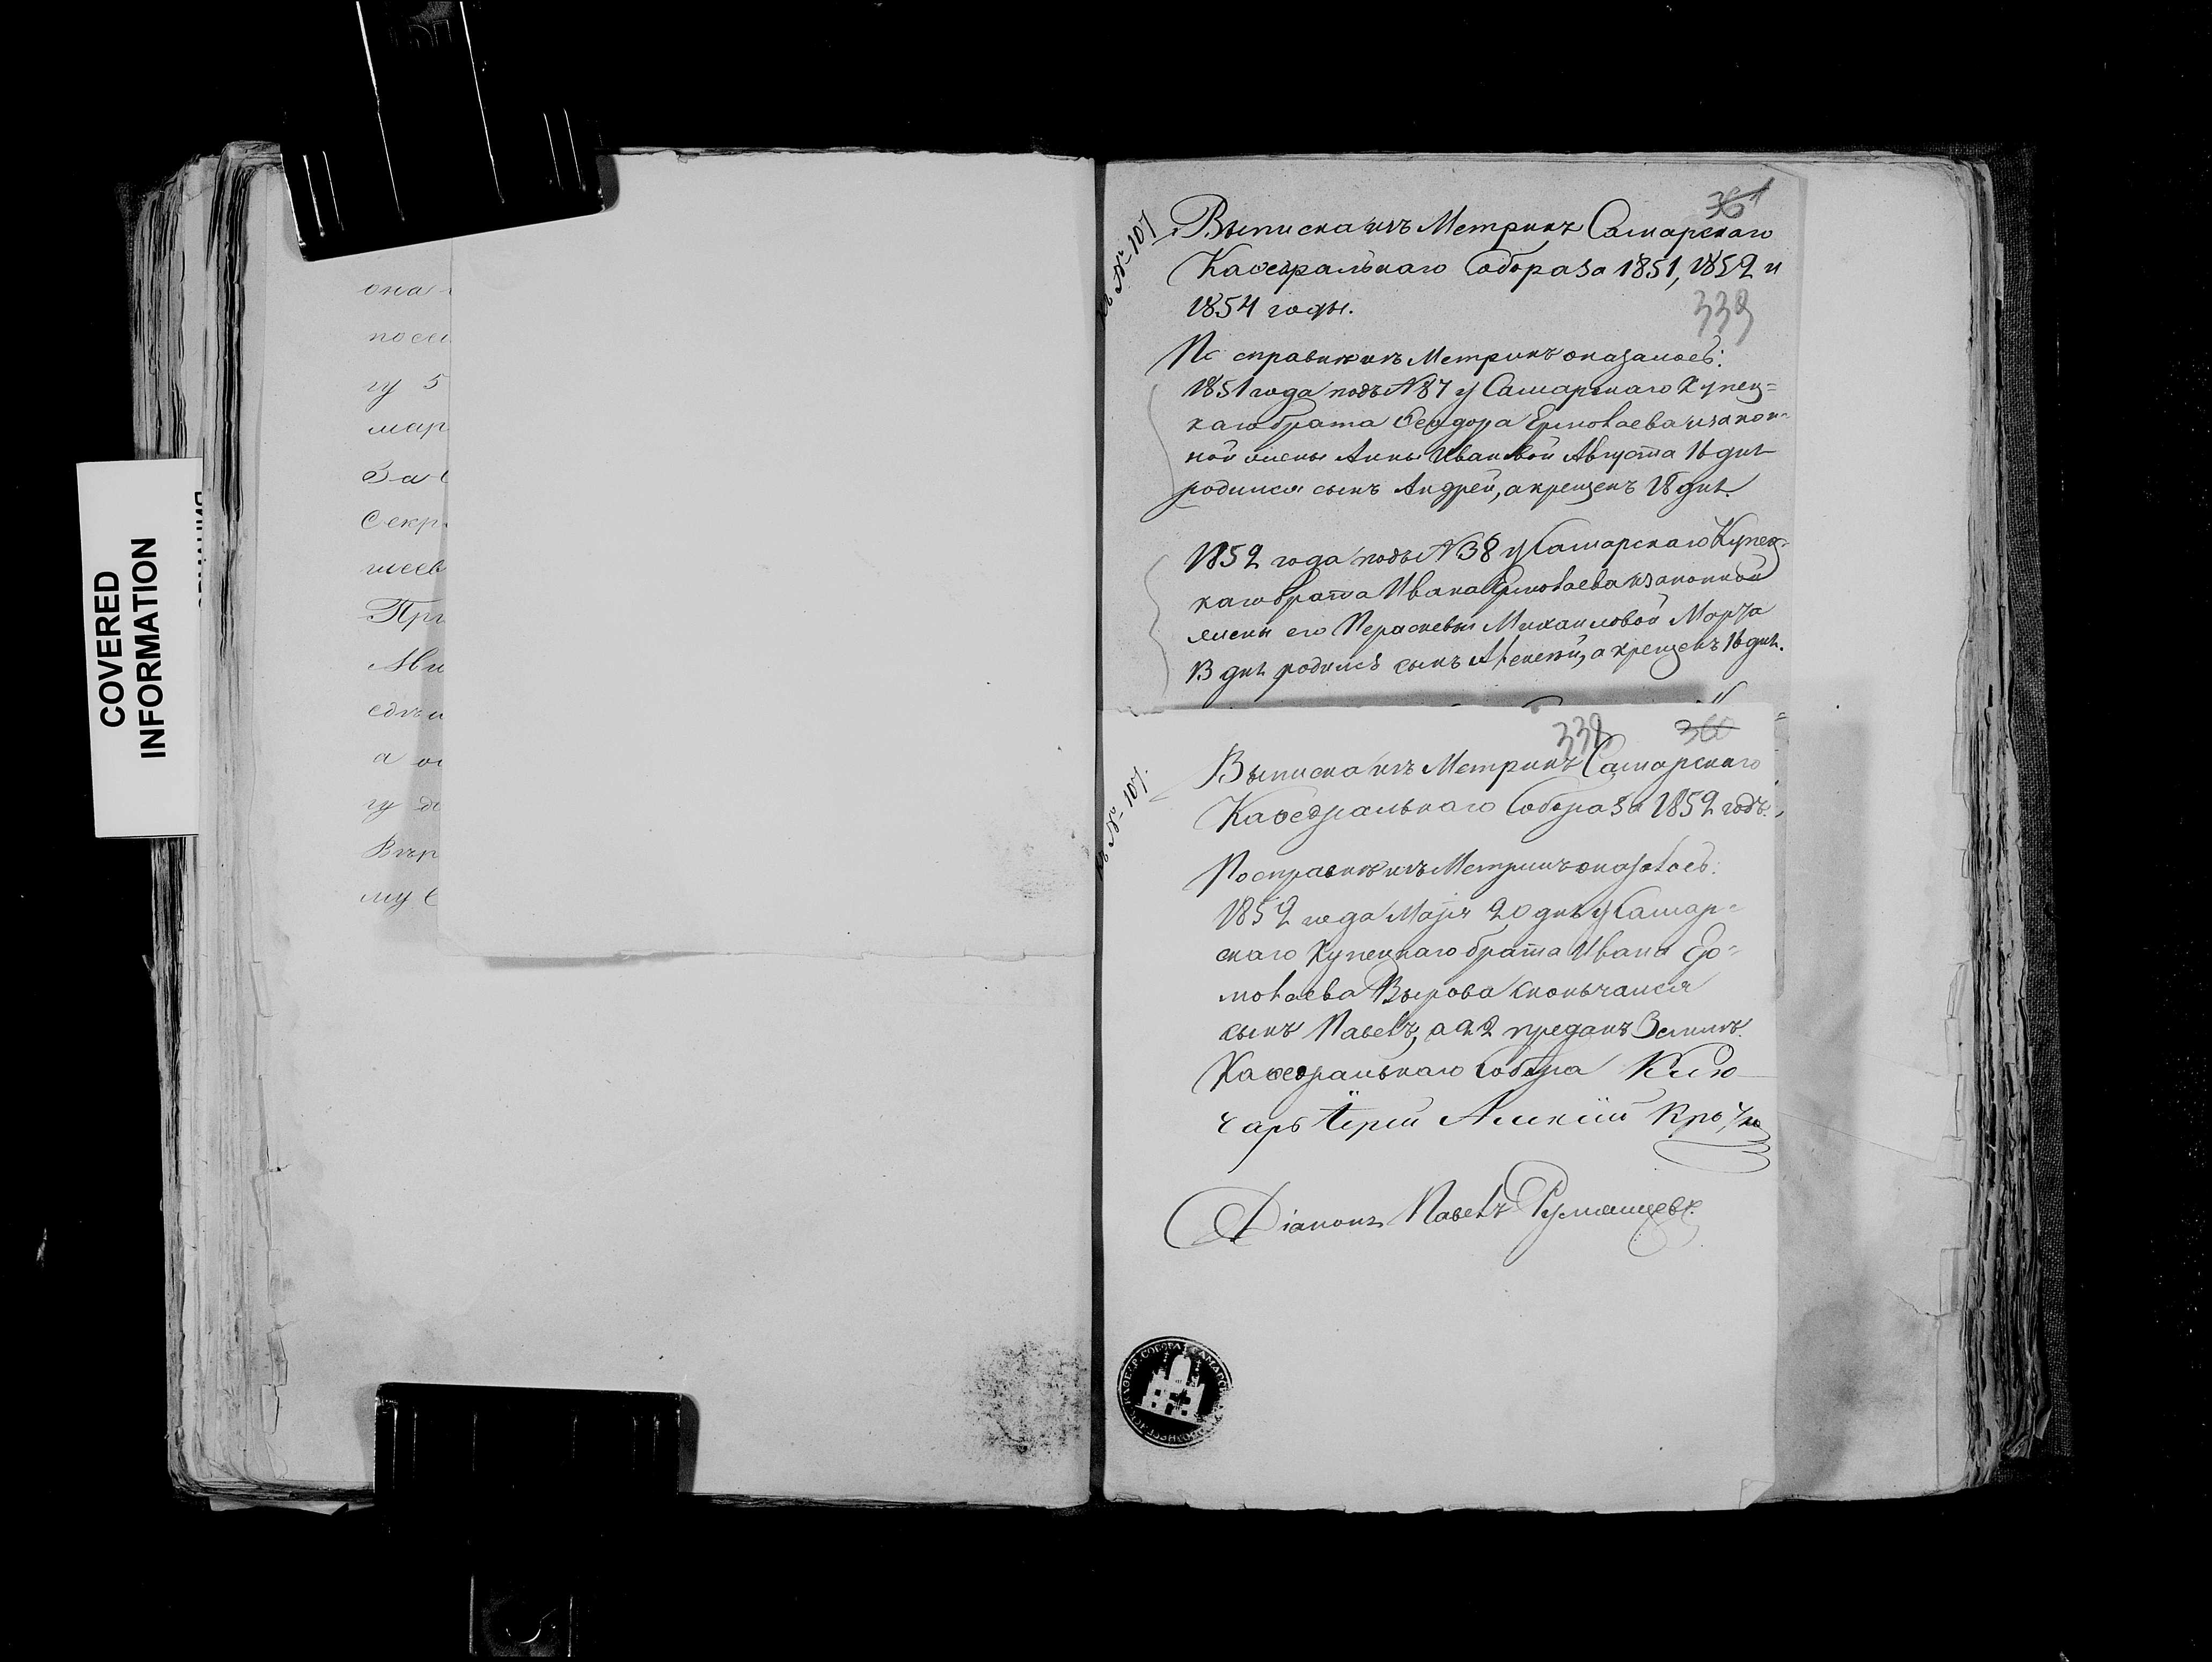 COVERED
INFORMATION
она
посе
гу 5
мар
За
Секр
шеев
При
Ми
едъи
а о
гу до
Вѣр
му С
къ № 107
361
Выписка изъ Метрикъ Самарскаго
Каѳедральнаго Собора за 1851, 1852 и
1854 годы.
339
По справкѣ изъ Метрикъ оказалось:
1851 года подъ № 87 у Самарскаго Купец=
каго брата Ѳеодора Ермолаева и закон=
ной жены Анны Ивановой Августа 16 дня
родился сынъ Андрей, а крещенъ 18 дня.
1852 года подъ № 38 у Самарскаго Купец=
каго брата Ивана Ермолаева и законной
жены его Параскевы Михаиловой Марта
13 дня родился сынъ Алексѣй, а крещенъ 16 дня.
338 360
къ № 107.
Выписка изъ Метрикъ Самарскаго
Каѳедральнаго Собора за 1852 годъ.
По справкѣ изъ Метрикъ оказалось:
1852 года Маія 20 дня у Самар=
скаго Купецкаго брата Ивана Ер=
молаева Вырова скончался
сынъ Павелъ, а 22 преданъ Землѣ.
Каѳедральнаго Собора Клю
чарь Іерей Алексій
Діаконъ Павелъ Румянцевъ